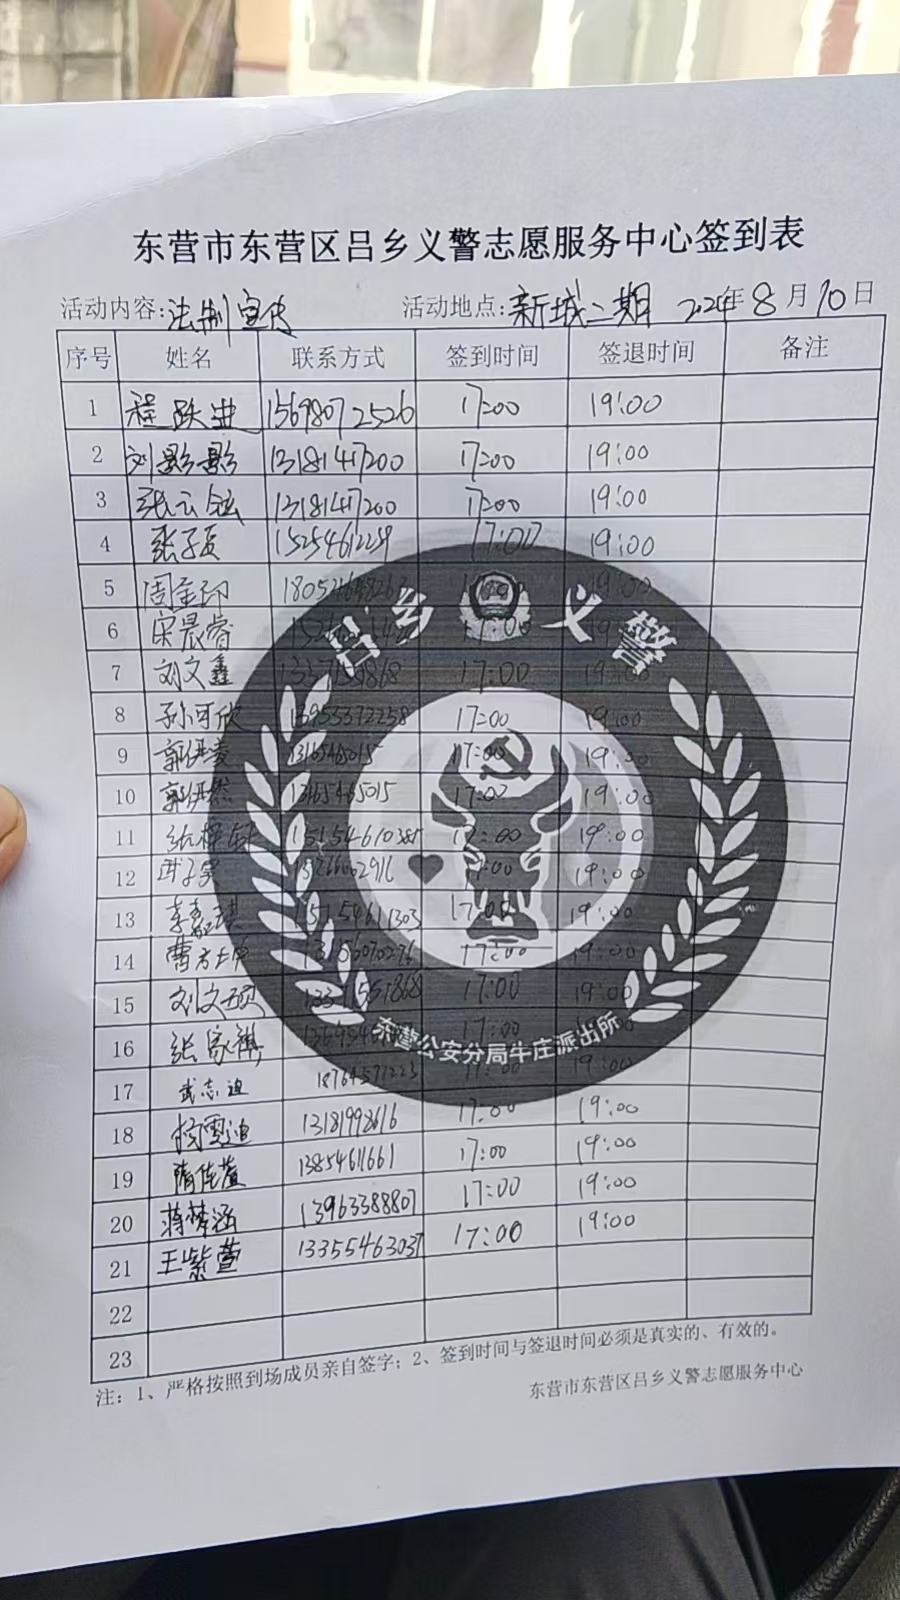 东营市东营区吕乡义警志愿服务中心签到表
活动内容:法制宣传 活动地点:新城二期 2024年8月10日
序号 姓名 联系方式 签到时间 签退时间 备注
1 程跃进 15698072526 17:00 19:00
2 刘影影 13181417200 17:00 19:00
3 张云铉 13181417200 17:00 19:00
4 张子贡 1525461229 17:00 19:00
5 17:00 19:00
6 宋晨睿 17:00 19:00
7 刘文鑫 17:00 19:00
8 孙可欣 13953372258 17:00 19:00
9 13165465015 17:00 19:00
10 13165465015 17:00 19:00
11 15154610385 17:00 19:00
12 17:00 19:00
13 李嘉琪 15154611303 17:00 19:00
14 17:00 19:00
15 刘文硕 17:00 19:00
16 张家祺 17:00 19:00
17 武志迪 18764571223 17:00 19:00
18 杨雪迪 13181992616 17:00 19:00
19 隋佳萱 1385461661 17:00 19:00
20 蒋梦涵 13963388807 17:00 19:00
21 王紫萱 13355463037 17:00 19:00
22
23
注: 1、严格按照到场成员亲自签字; 2、签到时间与签退时间必须是真实的、有效的。
东营市东营区吕乡义警志愿服务中心
吕乡义警
东营公安分局牛庄派出所